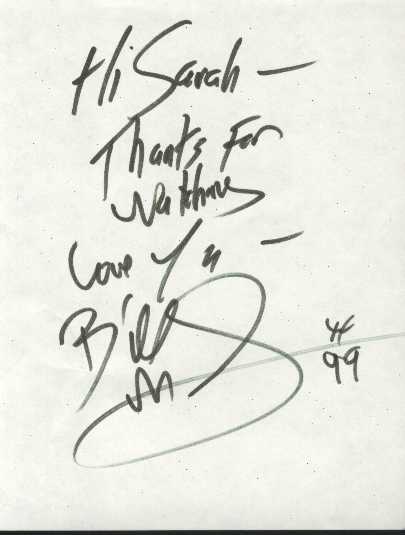 Hi Sarah —
Thanks For
Watching
Love Ya —
Bill
99